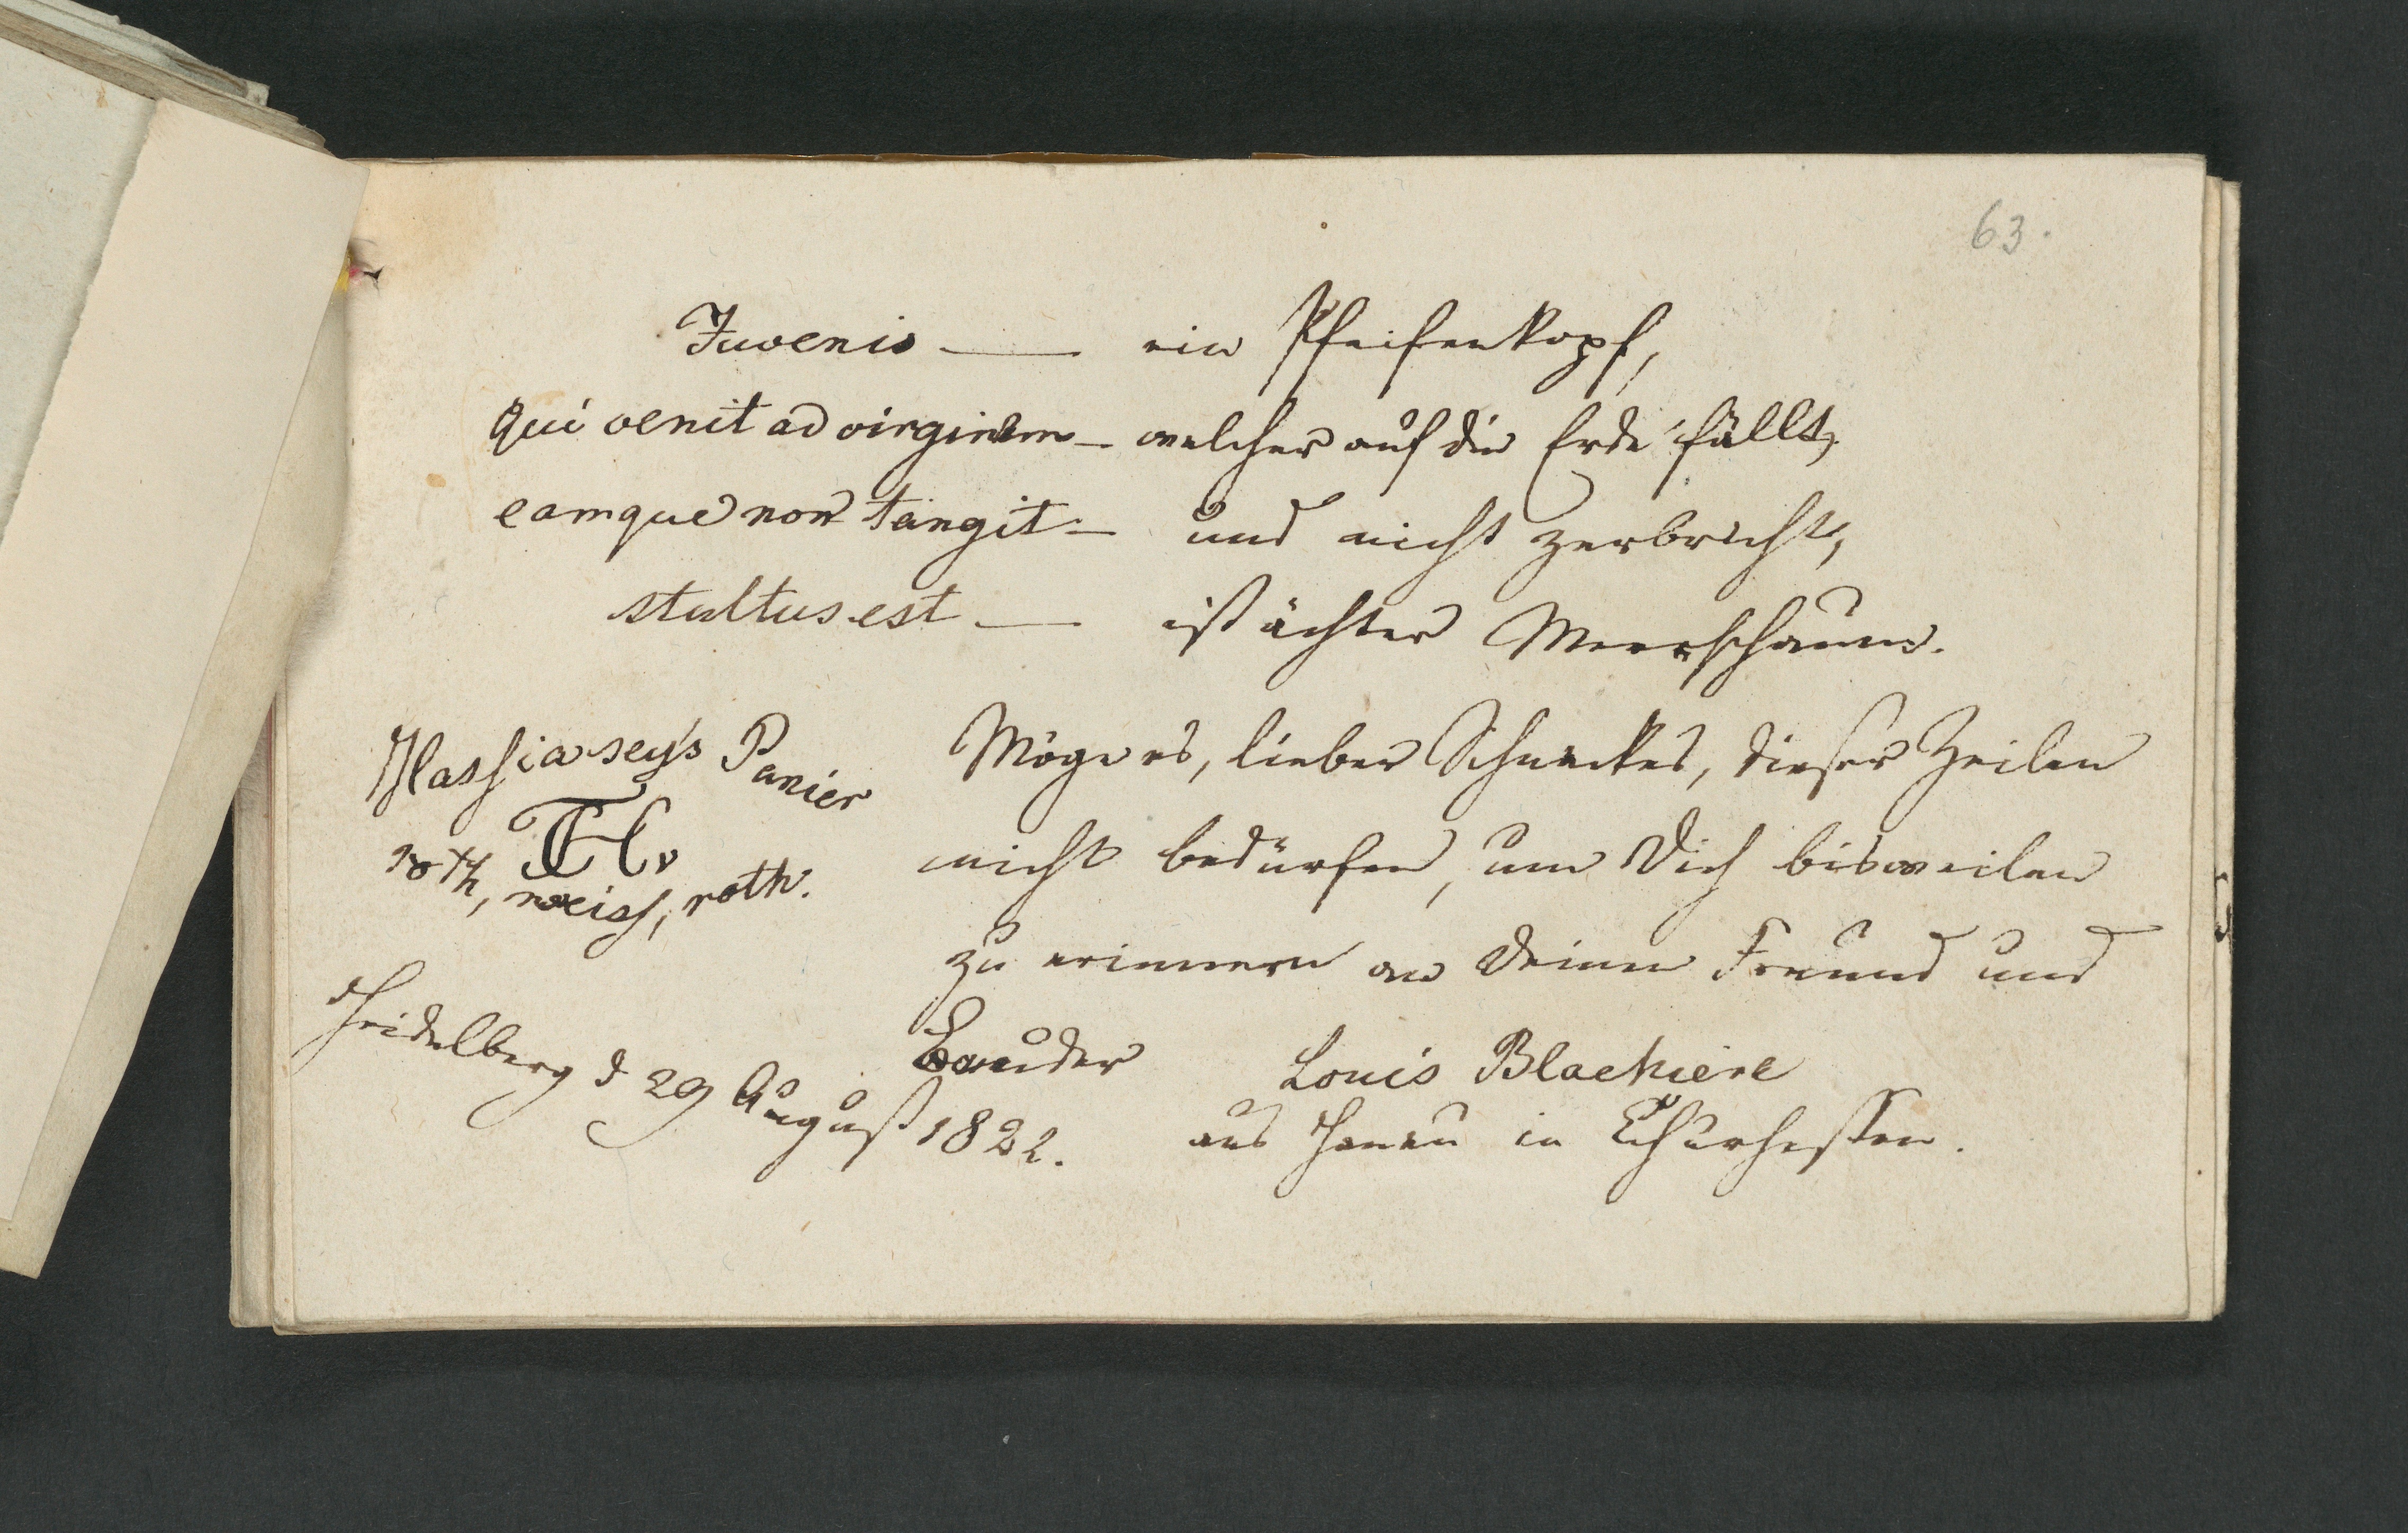 63.
Juvenis — ein Pfeifenkopf,
qui venit ad virginem — welcher auf die Erde fällt,
eamque non tangit — und nicht zerbricht,
stultus est — ist ächter Meerschaum.
Hassia sey's Panier
roth, weiss, roth.
Möge es, lieber dieser Zeilen
nicht bedürfen, um Dich bisweilen
zu erinnern an Deinen Freund und
Bruder Louis Blachiere
aus Hanau in Churhessen.
Heidelberg d 29 August 1822.